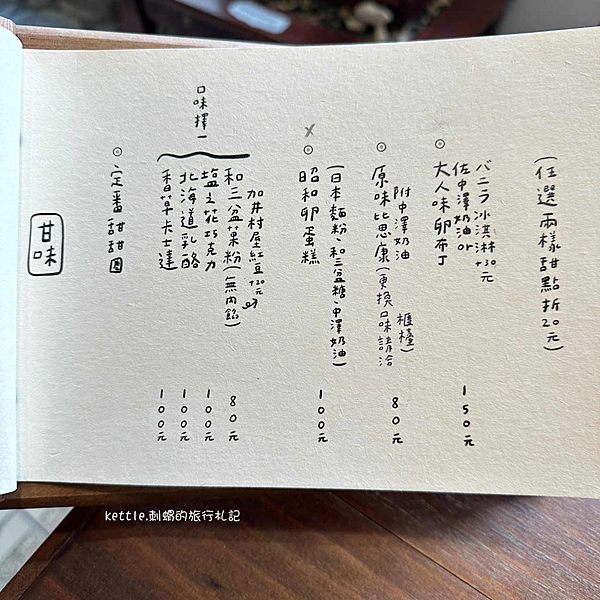 甘味
定番甜甜圈
口味擇一
香草卡士達 100元
北海道乳酪 100元
塩之花巧克力 100元
和三盆菓粉(無內餡) 80元
加井村屋紅豆+20元
昭和卵蛋糕
(日本麵粉、和三盆糖、中澤奶油) 100元
原味比思康(更換口味請洽櫃檯) 80元
附中澤奶油
大人味卵布丁
佐中澤奶油or 150元
バニラ冰淇淋+30元
(任選兩樣甜點折20元)
kettle.刺蝟的旅行札記